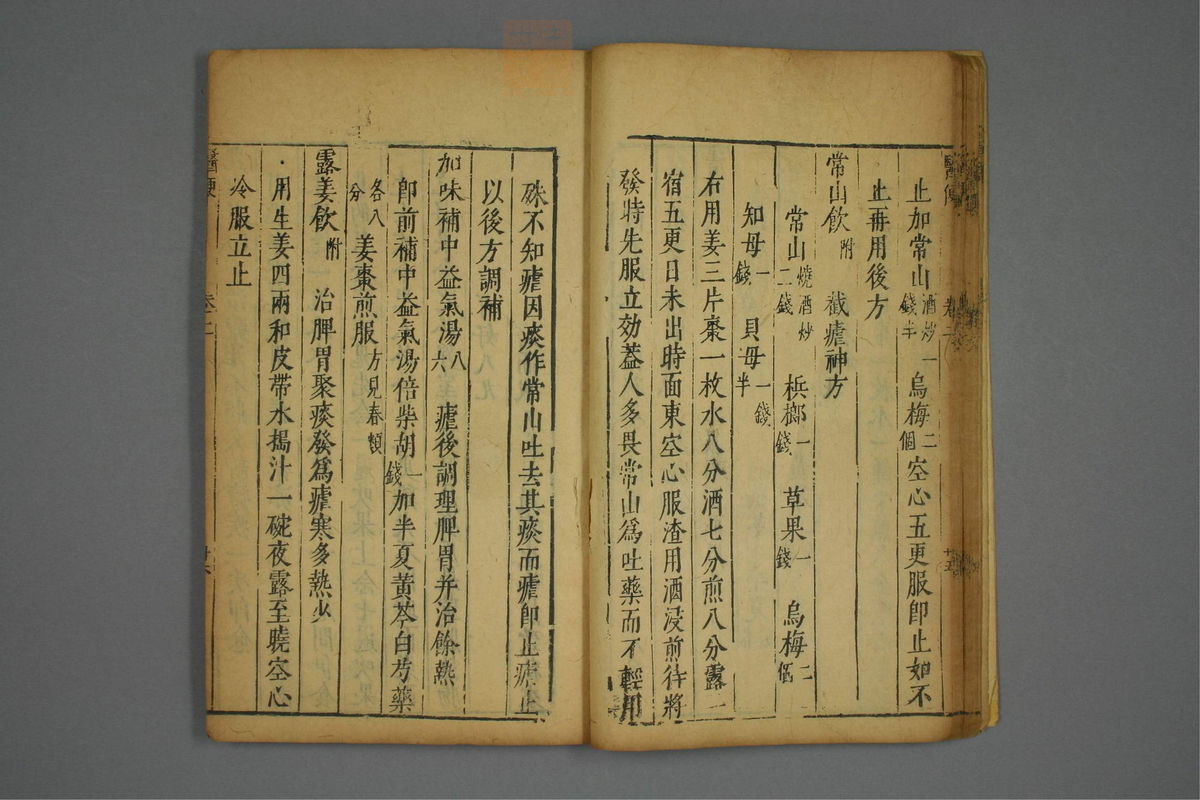 止加常山酒炒一錢半烏梅二個空心五更服即止如不
止再用後方
常山飲附　截瘧神方
常山燒酒炒二錢　梹榔一錢　草果一錢　烏梅二個
知母一錢　貝母一錢半
右用姜三片棗一枚水八分酒七分煎八分露一
宿五更日未出時面東空心服渣用酒浸煎待將
發時先服立効蓋人多畏常山為吐藥而不輕用
殊不知瘧因痰作常山吐去其痰而瘧即止瘧止
以後方調補
加味補中益氣湯八六　瘧後調理脾胃并治餘熱
即前補中益氣湯倍柴胡一錢加半夏黃芩白芍藥
各八分　姜棗煎服方見春類
露姜飲附　治脾胃聚痰發為瘧寒多熱少
用生姜四兩和皮帶水搗汁一碗夜露至曉空心
冷服立止
醫便　卷二